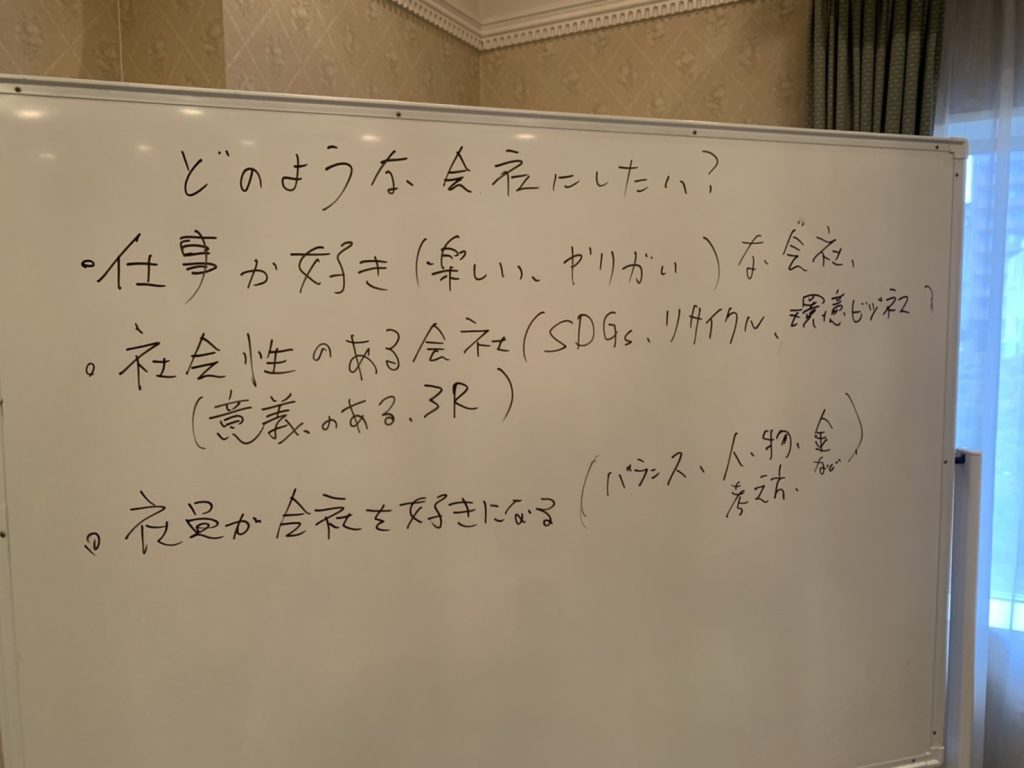 どのような会社にしたい?
・仕事が好き(楽しい、やりがい)な会社、
・社会性のある会社(SDGs、リサイクル、環境ビジネス)
(意義のある、3R)
・社員が会社を好きになる(バランス、人、物、金など
考え方、)